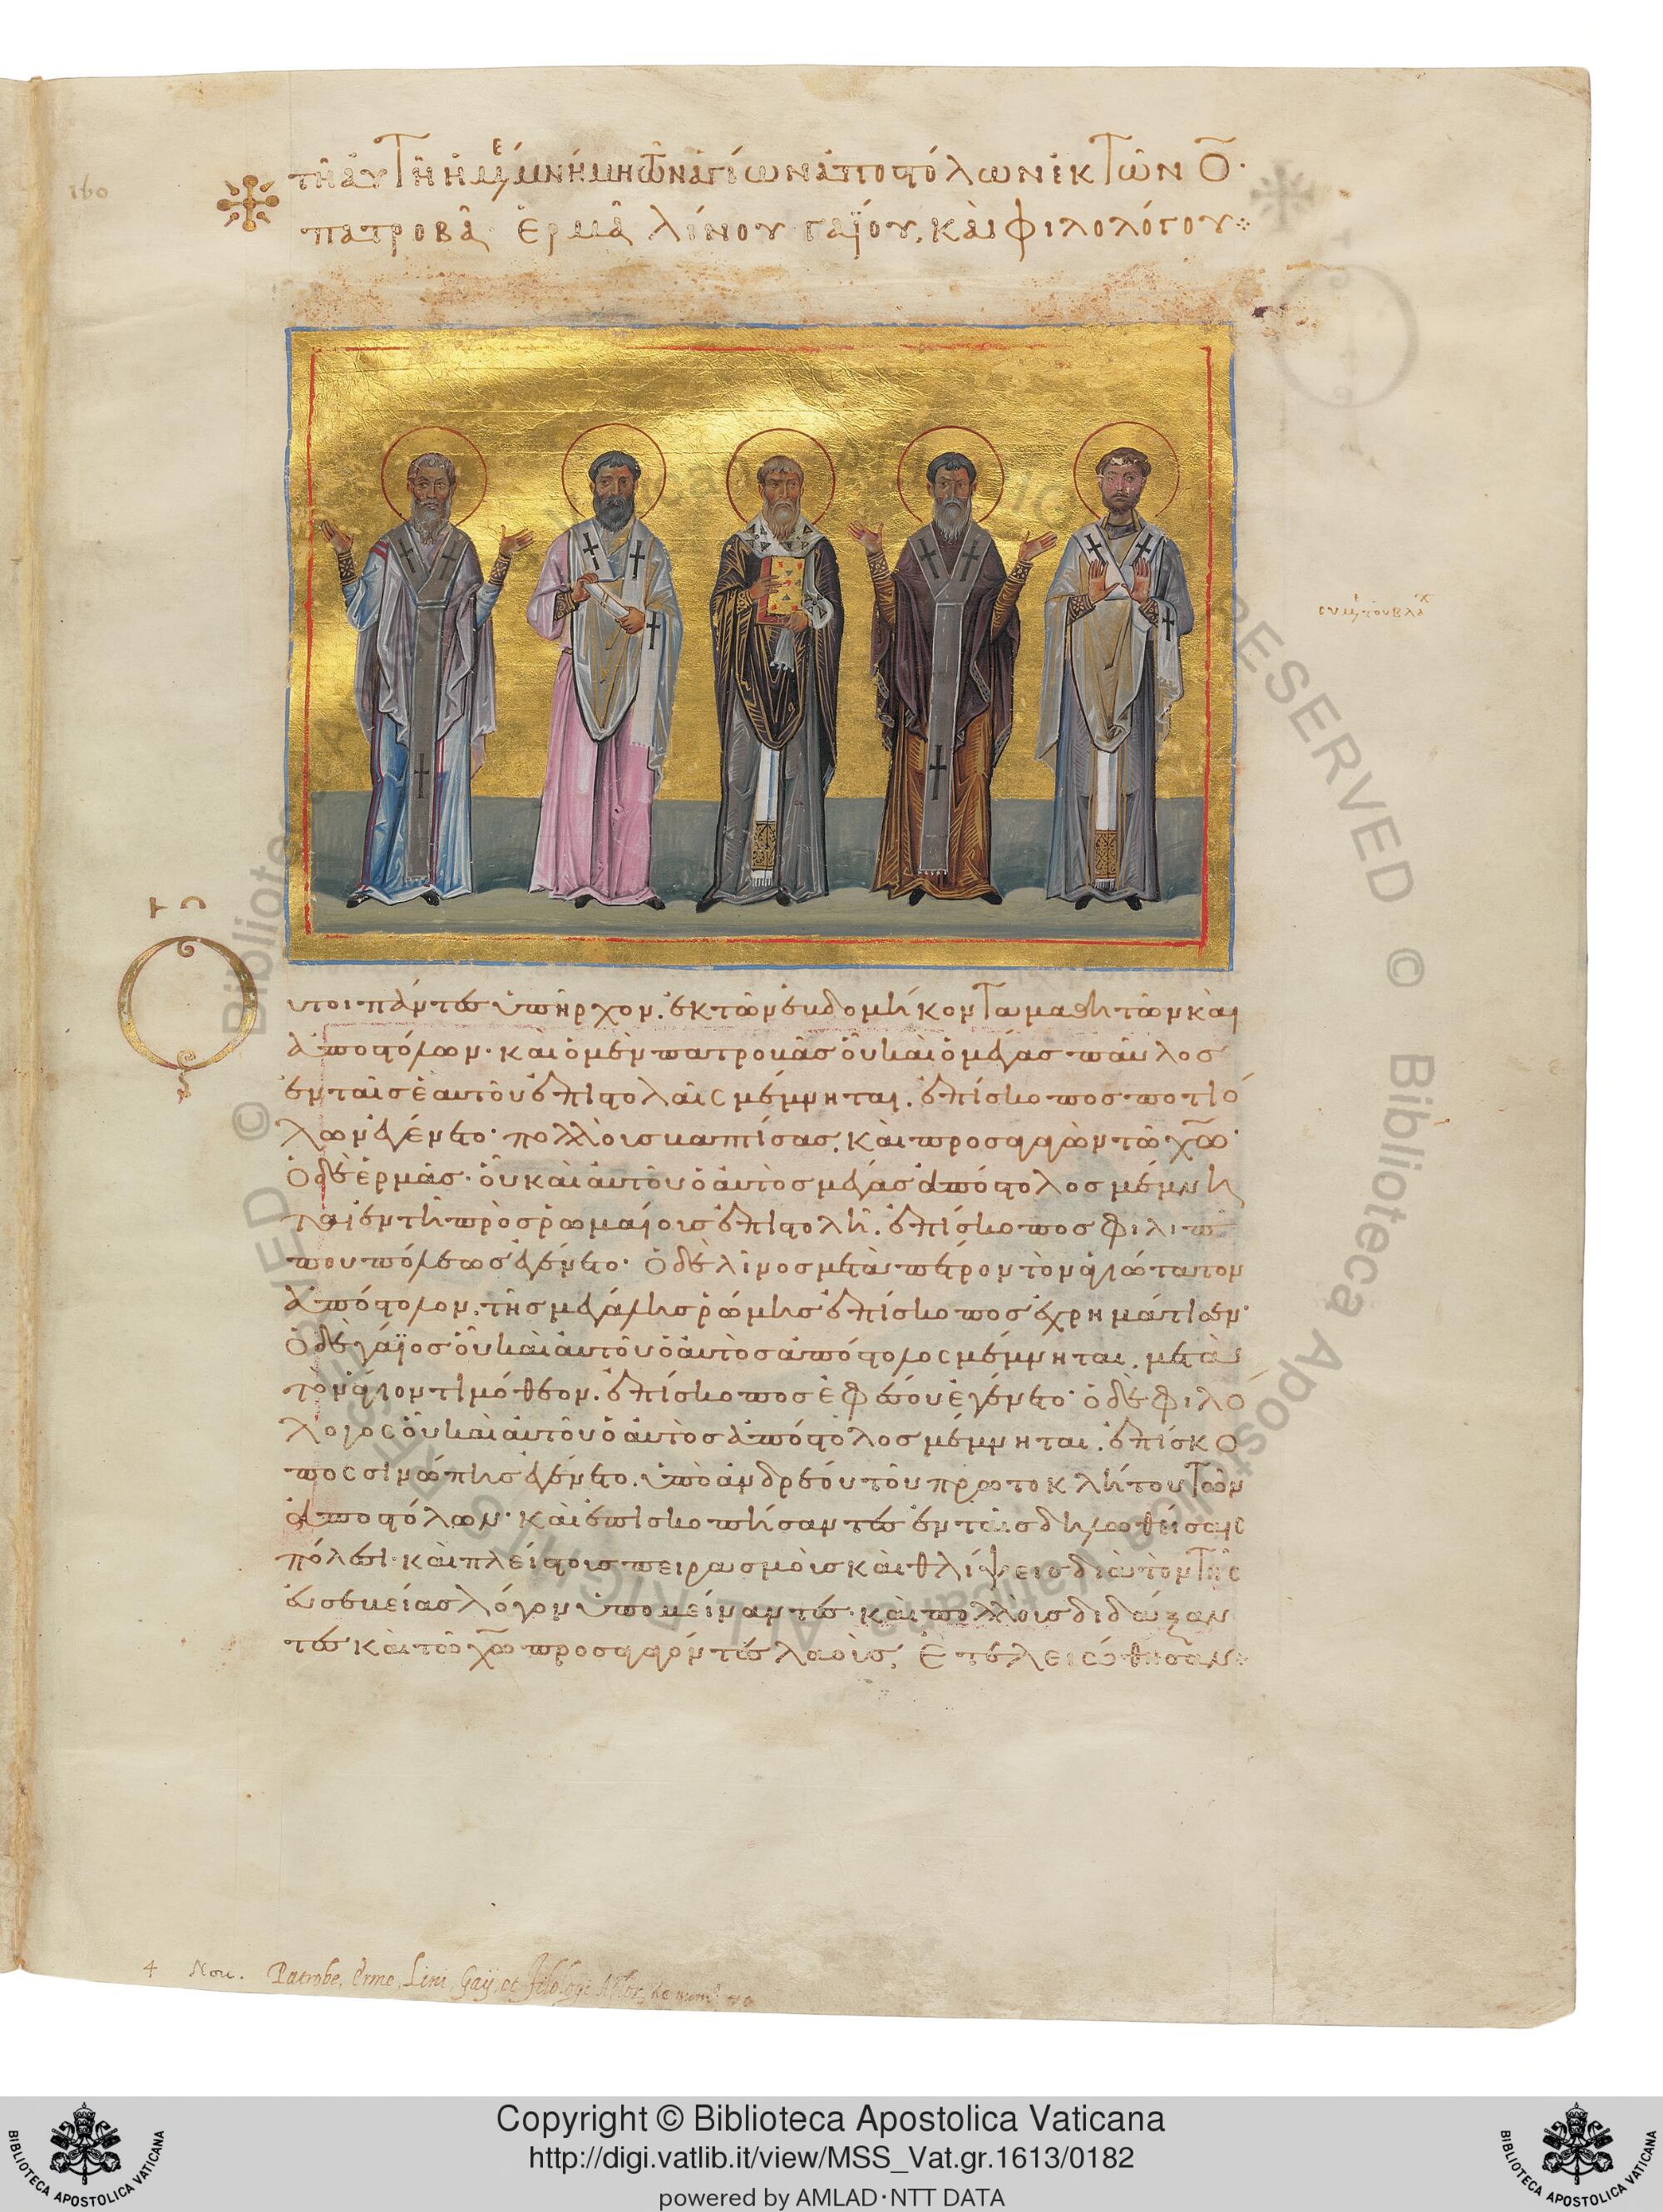 160
τῆ αὐτῆ ἡμέ μνήμη τῶν ἁγίων ἀποστόλων ἐκ τῶν Ο̅·
πατροβᾶ· ἑρμᾶ λίνου γαΐου, καὶ φιλολόγου
Οὗτοι πάντες ὑπῆρχον. ἐκ τῶν ἑβδομήκοντα μαθητῶν καὶ
ἀποστόλων· καὶ ὁ μὲν πατροβᾶς οὗ καὶ ὁ μέγας παῦλος
ἐν ταῖς ἑαυτοῦ ἐπιστολαῖς μέμνηται. ἐπίσκοπος ποτιό
λων ἐγένετο· πολλοὺς βαπτίσας, καὶ προσαγαγὼν τῶ χῶ·
Ὁ δὲ ἑρμᾶς· οὗ καὶ αὐτοῦ ὁ αὐτὸς μέγας ἀπόστολος μέμνη
ται ἐν τῆ πρὸς ῥωμαίους ἐπιστολῆ. ἐπίσκοπος φιλιπ
πουπόλεως ἐγένετο· Ὁ δὲ λίνος μετὰ πέτρον τὸν ἁγιώτατον
ἀπόστολον. τῆς μεγάλης ῥώμης ἐπίσκοπος ἐχρημάτισεν·
Ὁ δὲ γάϊος οὗ καὶ αὐτοῦ ὁ αὐτὸς ἀπόστολος μέμνηται, μετὰ
τὸν ἅγιον τιμόθεον. ἐπίσκοπος ἐφέσου ἐγένετο· ὁ δὲ φιλό
λογος οὗ καὶ αὐτοῦ ὁ αὐτὸς ἀπόστολος μέμνηται. ἐπίσκο
πος σινώπης ἐγένετο. ὑπὸ ἀνδρέου τοῦ πρωτοκλήτου τῶν
ἀποστόλων· καὶ ἐπισκοπήσαντες ἐν ταῖς δηλωθείσαις
πόλεσι· καὶ πλείστοις πειρασμοῖς καὶ θλίψεις διὰ τὸν τῆς
εὐσεβείας λόγον ὑπομείναντες· καὶ πολλοὺς διδάξαν
τες καὶ τῶ χῶ προσαγαγόντες λαοὺς, Ἐτελειώθησαν
4 Nou. Patrobe, Erme, Lini, Gaÿ, et Filologi
Copyright © Biblioteca Apostolica Vaticana
http://digi.vatlib.it/view/MSS_Vat.gr.1613/0182
powered by AMLAD·NTT DATA
BIBLIOTECA APOSTOLICA VATICANA
BIBLIOTECA APOSTOLICA VATICANA